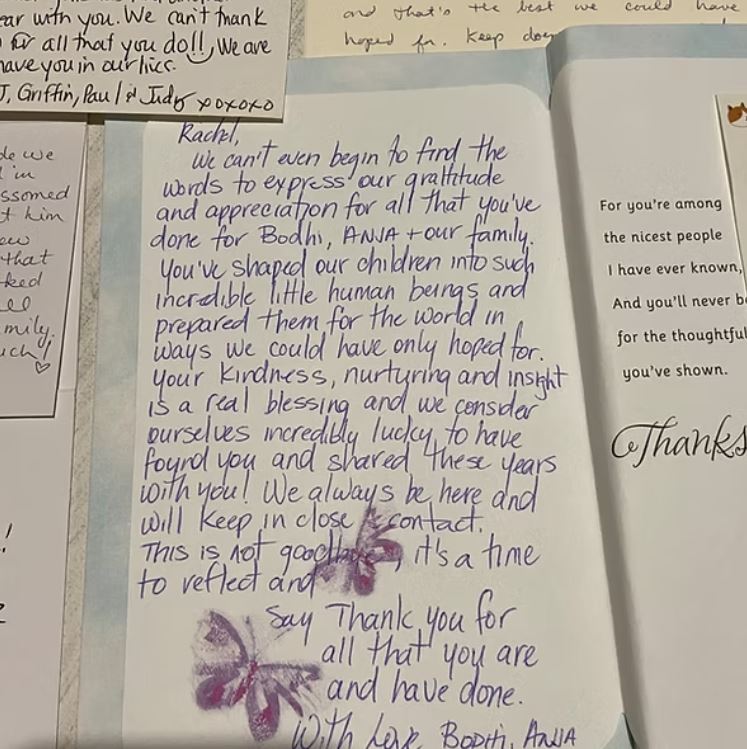 ear with you. We can't thank
for all that you do!! We are
have you in our lives.
J, Griffin, Paul & Judy xoxoxo
and that's the best we could have
hoped for. Keep
de we
I'm
ssomed
t him
ew
that
ked
ell
mily.
uch!
!
Rachel,
We can't even begin to find the
words to express our gratitude
and appreciation for all that you've
done for Bodhi, ANJA + our family.
You've shaped our children into such
incredible little human beings and
prepared them for the world in
ways we could have only hoped for.
Your kindness, nurturing and insight
is a real blessing and we consider
ourselves incredibly lucky to have
found you and shared these years
with you! We always be here and
will keep in close contact.
This is not goodbye, it's a time
to reflect and
Say Thank you for
all that you are
and have done.
With Love, BODHI, ANJA
For you're among
the nicest people
I have ever known,
And you'll never b
for the thoughtful
you've shown.
Thanks